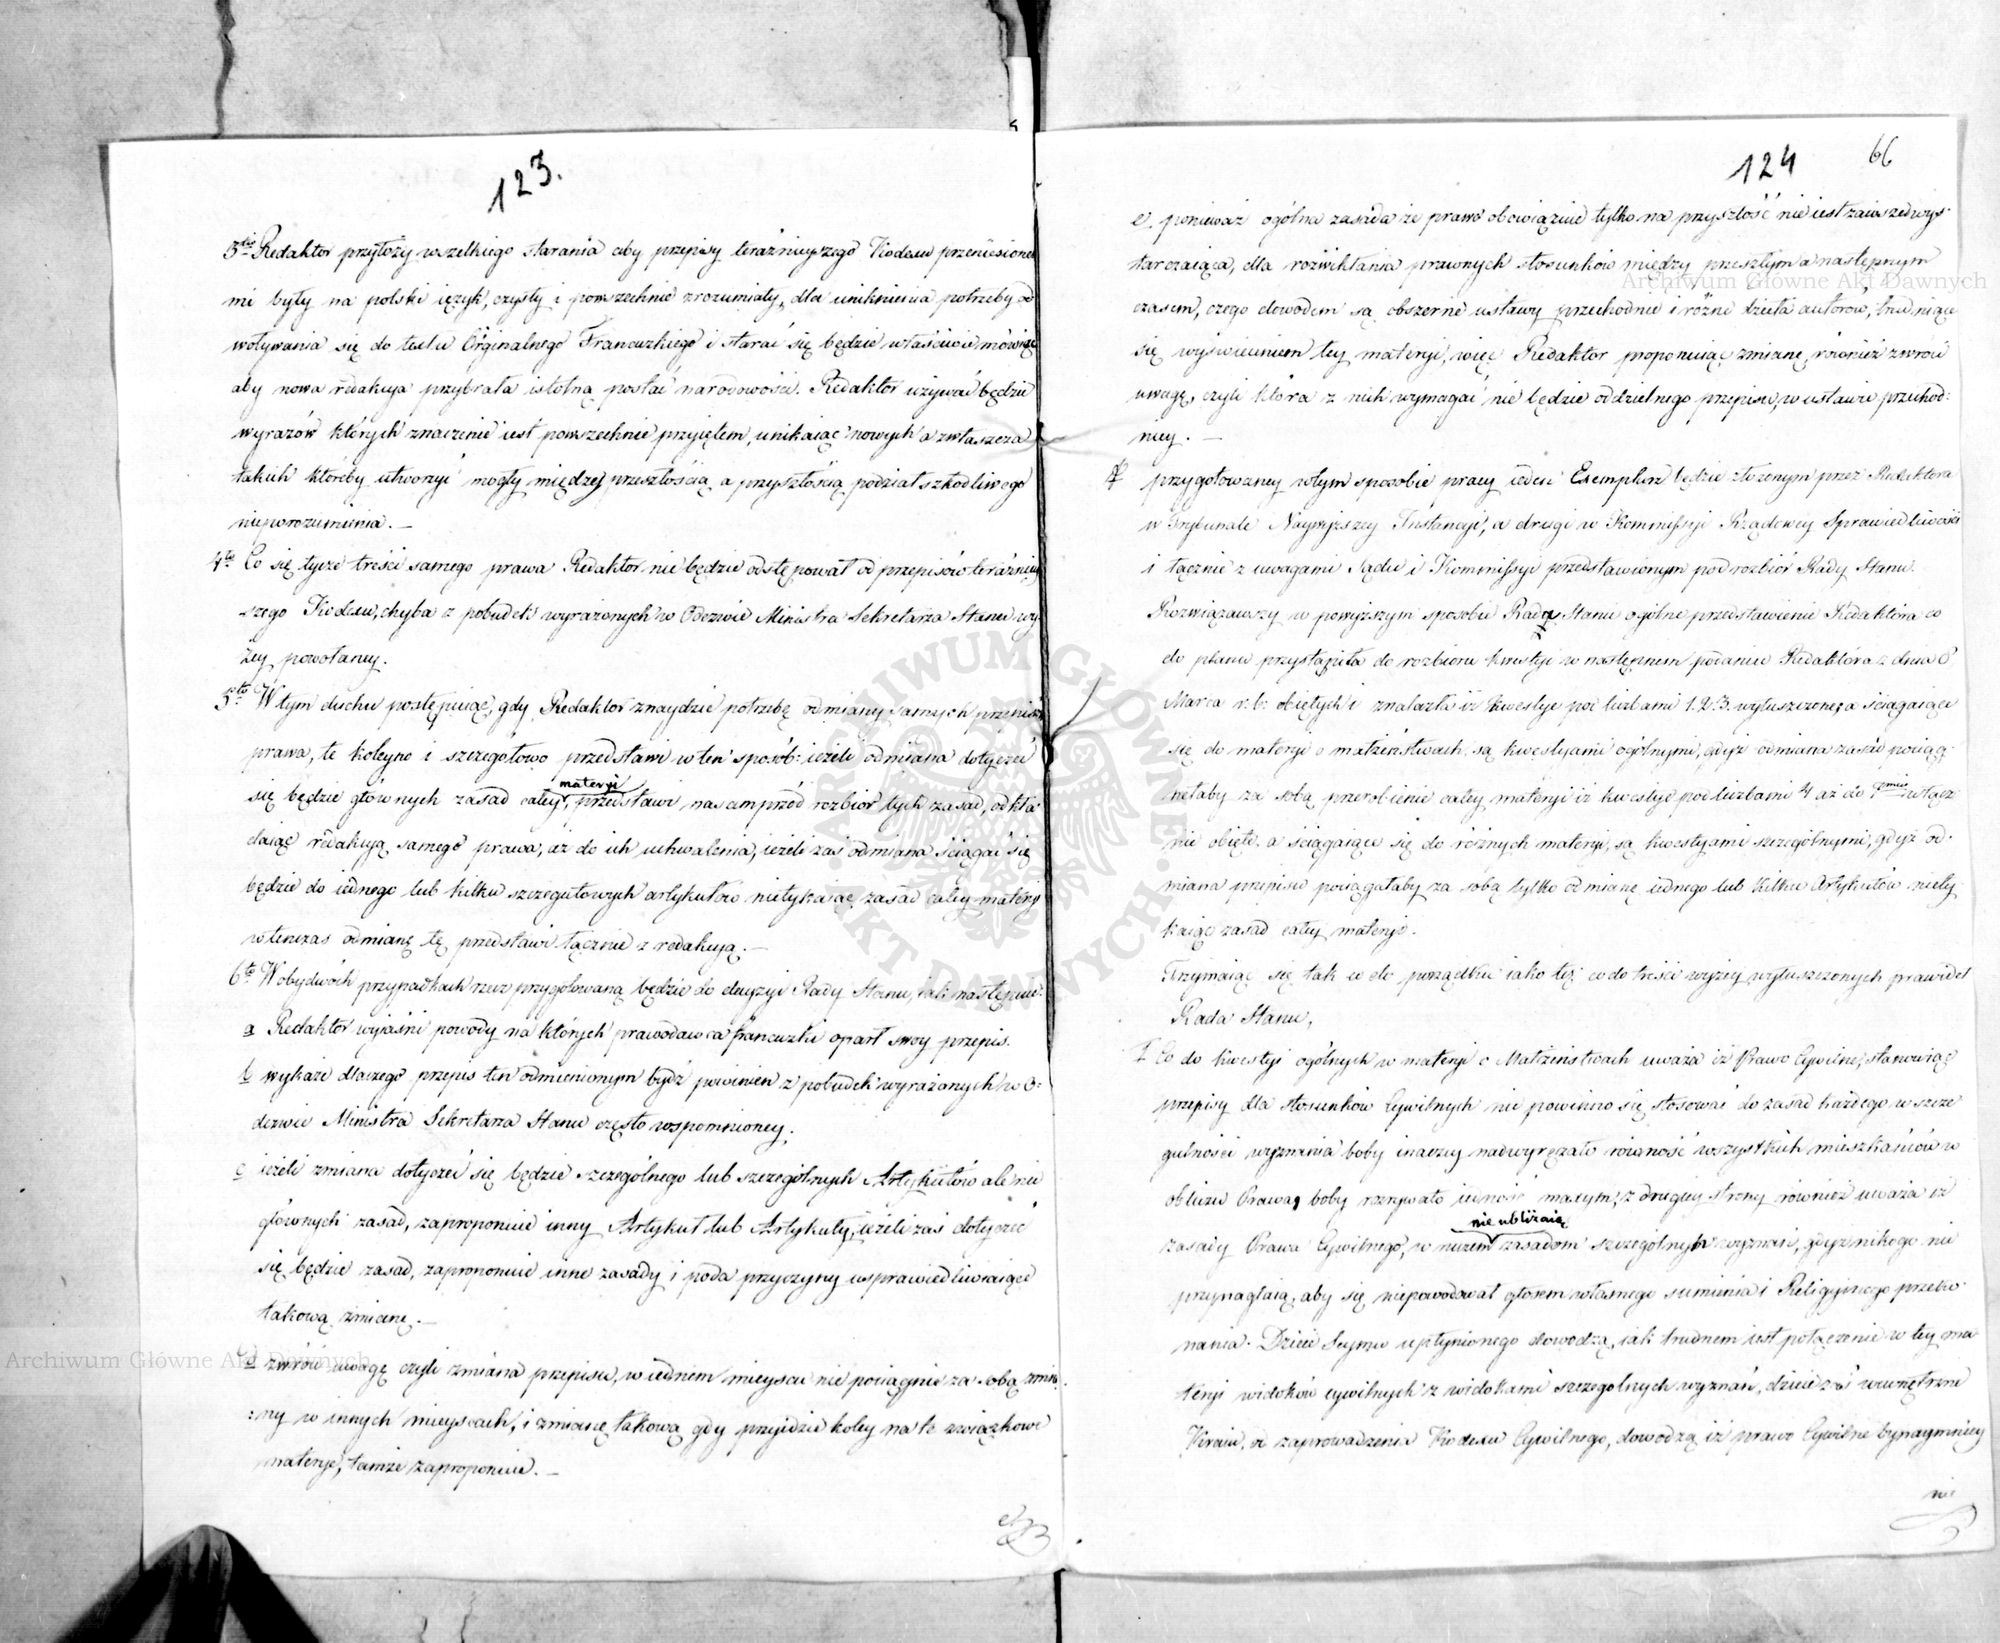 123.
3tio Redaktor przyłoży wszelkiego starania aby przepisy teraźnieyszego Kodexu przeniesione
mi były na polski ięzyk, czysty i powszechnie zrozumiały, dla uniknienia potrzeby od
woływania się do textu Orginalnego Francuzkiego i starać się będzie właściwie mówiąc
aby nowa redakcya przybrała istotną postać narodowości. Redaktor używać będzie
wyrazów których znaczenie iest powszechnie przyiętem, unikaiąc nowych a zwłaszcza
takich któreby utworzyć mogły między przeszłością a przyszłością podział szkodliwego
nieporozumienia. —
4to Co się tycze treści samego prawa Redaktor nie będzie odstępował od przepisów teraźniey
szego Kodexu, chyba z pobudek wyrażonych w Odezwie Ministra Sekretarza Stanu wy
żey powołaney.
5to W tym duchu postępuiąc, gdy Redaktor znaydzie potrzebę odmiany samych przepisów
prawa, te koleyno i szczegółowo przedstawi w ten sposób: ieżeli odmiana dotyczeć
się będzie głównych zasad całey materyi, przedstawi nasamprzód rozbiór tych zasad, odkła
daiąc redakcyą samego prawa, aż do ich uchwalenia, ieżeli zaś odmiana ściągać się
będzie do iednego lub kilku szczegułowych artykułów nietykaiąc zasad całey materyi
wtenczas odmianę tę przedstawi łącznie z redakcyą. —
6to W obydwóch przypadkach rzecz przygotowaną będzie do decyzyi Rady Stanu, iak następuie:
a Redaktor wyiaśni powody na których prawodawca francuzki oparł swoy przepis.
b wykaże dlaczego przepis ten odmienionym bydź powinien z pobudek wyrażanych w O:
dezwie Ministra Sekretarza Stanu często wspomnioney.
c ieżeli zmiana dotyczeć się będzie szczególnego lub szczególnych Artykułów ale nie
głównych zasad, zaproponuie inny Artykuł lub Artykuły, ieżeli zaś dotyczeć
się będzie zasad, zaproponuie inne zasady i poda przyczyny usprawiedliwiaiące
takową zmianę. —
d zwróci uwagę czyli zmiana przepisu, w iednem mieyscu nie pociągnie za sobą zmia
:ny w innych mieyscach, i zmianę takową gdy przyidzie koley na te związkowe
materye, tamże zaproponuie. —
124 66
e. ponieważ ogólna zasada że prawo obowiązuie tylko na przyszłość nie iest zawsze dwys
tarczaiąca, dla rozwikłania prawnych stosunków między przeszłym a następnym
czasem, czego dowodem są obszerne ustawy przechodnie i różne dzieła autorów, trudniące
się wyświeceniem tey materyi, więc Redaktor proponuiąc zmianę, również zwróci
uwagę, czyli która z nich wymagać nie będzie oddzielnego przepisu, w ustawie przechod:
niey. —
f przygotowaney w tym sposobie pracy ieden Exemplarz będzie złożonym przez Redaktora
w Trybunale Naywyższey Instancyi, a drugi w Kommissyi Rządowey Sprawiedliwości
i łącznie z uwagami Sądu i Kommissyi przedstawionym pod rozbiór Rady Stanu.
Rozwiązawszy w powyższym sposobie Rada Stanu ogólne przedstawienie Redaktora co
do planu przystąpiła do rozbioru kwestyi w następnem podaniu Redaktora z dnia 8
Marca r. b. obiętych i znalazła iż kwestye pod liczbami 1. 2. 3. wyłuszczone, a ściągaiące
się do materyi o małżeństwach, są kwestyami ogólnymi, gdyż odmiana zasad pociąg
nęłaby za sobą przerobienie całey materyi iż kwestye pod liczbami 4 aż do włącz
nie obięte, a ściągaiące się do różnych materyi, są kwestyami szczególnymi, gdyż od-
miana przepisu pociągałaby za sobą tylko odmianę iednego lub kilku Artykułów niety
kaiąc zasad całey materyi.
Trzymaiąc się tak co do porządku iako też co do treści wyżey wyłuszczonych prawideł
Rada Stanu,
I Co do kwestyi ogólnych w materyi o Małżeństwach uważa iż Prawo Cywilne, stanowiąc
przepisy dla stosunków Cywilnych nie powinno się stosować do zasad każdego w szcze
gulności wyznania boby inaczey nadwyrężało równość wszystkich mieszkańców w
obliczu Prawa, boby rozrywało iedność maxym; z drugiey strony również uważa iż
zasady Prawa Cywilnego, w niczem nie ubliżaią zasadom szczególnych wyznań, gdyż nikogo nie
przynaglaią, aby się niepowodował głosem własnego sumienia i Religiynego przeko
nania. Dzieie Seymu upłynionego dowodzą, iak trudnem iest połączenie w tey ma
teryi widoków cywilnych z widokami szczególnych wyznań, dzieie zaś wewnętrzne
Kraiu, od zaprowadzenia Kodexu Cywilnego, dowodzą iż prawo Cywilne bynaymniey
nie
Archiwum Główne Akt Dawnych
Archiwum Główne Akt Dawnych
ARCHIWUM GŁÓWNE AKT DAWNYCH